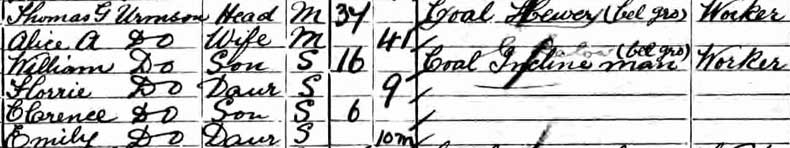 Thomas G Urmson Head M 37 Coal Hewer (bel gro) Worker
Alice A Do Wife M 41
William Do Son S 16 Coal Incline man (bel gro) Worker
Florrie Do Daur S 9
Clerence Do Son S 6
Emily Do Daur S 10m